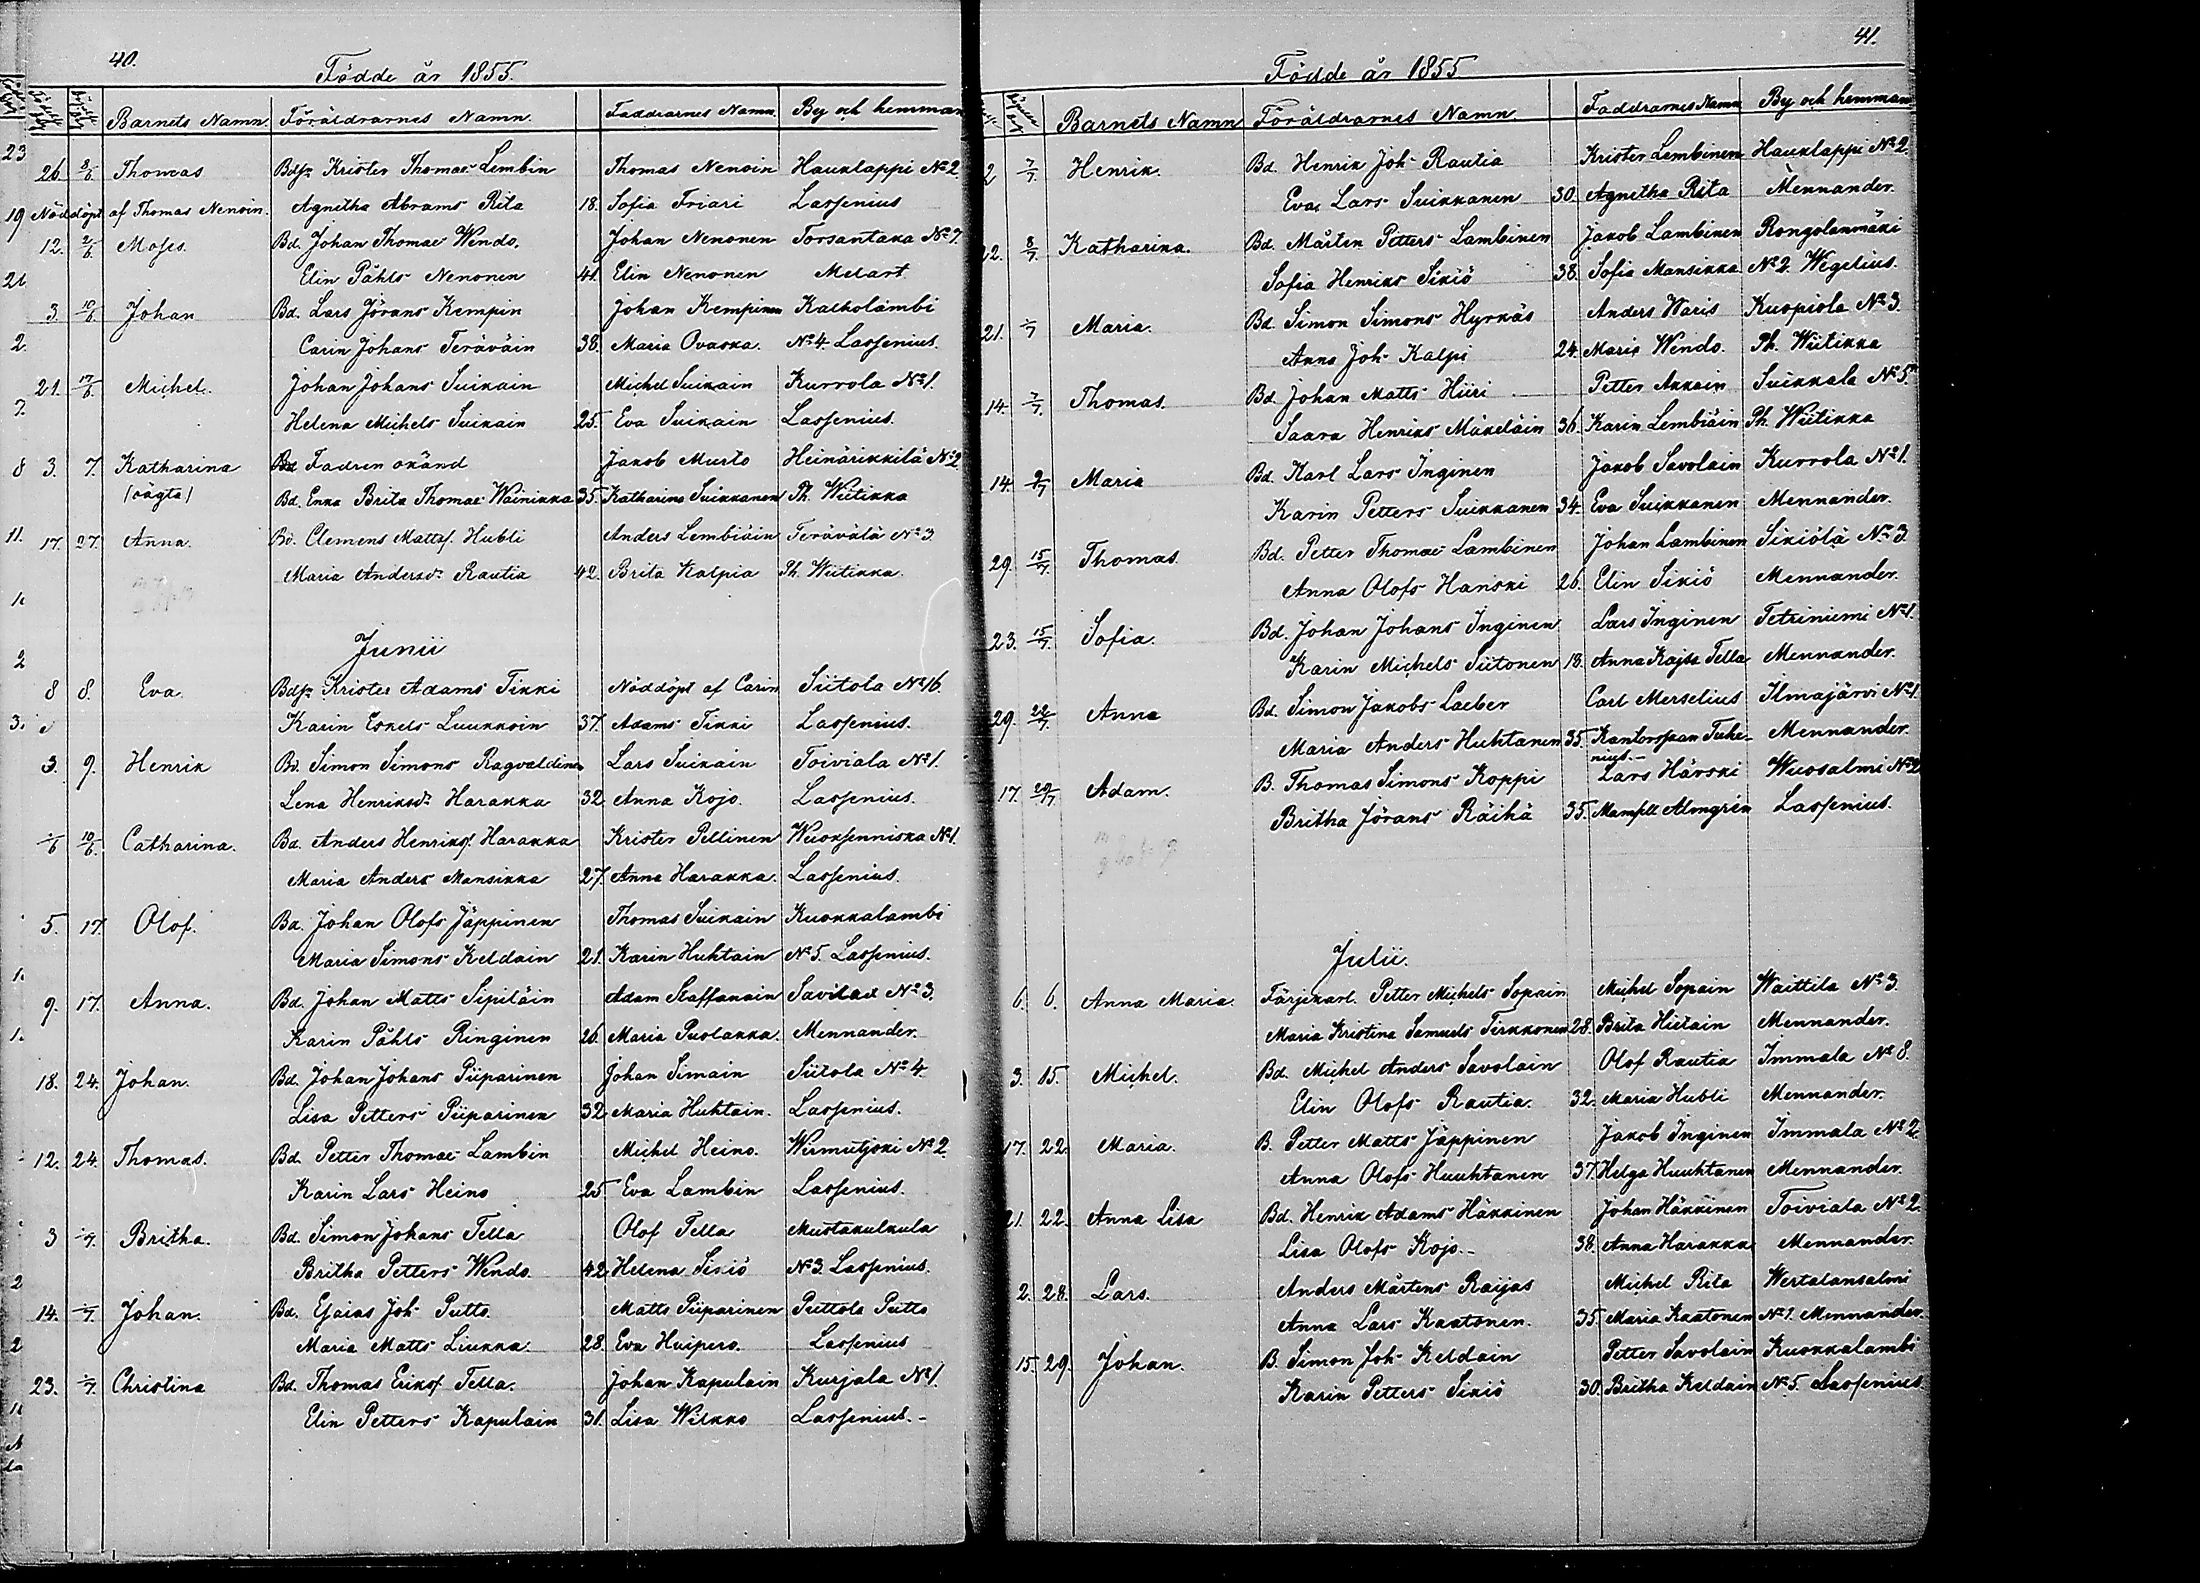 40.
Födde år 1855.
Barnets Namn. Föräldrarnes Namn. Faddrarnes Namn. By och hemman
26. 8/6. Thomas Bdsn Krister Thomae Lembin Thomas Nenoin Hauklappi No 2
Nöddöpt af Thomas Nenoin. Agnetha Abrams Rita 18. Sofia Friari Lassenius
12. 2/6. Moses. Bd. Johan Thomae Wendo. Johan Nenonen Torsantaka No 7.
Elin Påhls Nenonen 41. Elin Nenonen Melart
3. 10/6 Johan Bd. Lars Jörans Kempin Johan Kempinen Kalholambi
Carin Johans Teräväin 38. Maria Ovaska. No 4. Lassenius.
21. 17/6. Michel. Johan Johans Suikain Michel Suikain Kurrola No 1.
Helena Michels Suikain 25. Eva Suikain Lassenius.
3. 7. Katharina Bd Fadren okänd Jakob Murto Heinärikkilä No 2
(oägta) Bd. Enka Brita Thomae Wainikka 35. Katharina Suikkanen Ph. Wiitikka
17. 27. Anna. Bd. Clemens Mattss. Hubli Anders Lembiäin Terävälä No 3.
Maria Andersdr Rautia 42. Brita Kalpia Ph. Wiitikka.
Junii
8 8. Eva Bdsn Krister Adams Tikki Nöddöpt af Carin Siitola No 16.
Karin Eskels Luukkoin 37. Adams Tikki Lassenius.
3. 9. Henrik Bd. Simon Simons Ragvaldinen Lars Suikain Toiviala No 1.
Lena Henriksdr Harakka 32. Anna Kojo. Lassenius.
10/6. Catharina. Bd. Anders Henrikss. Harakka Krister Pellinen Wuoksenniska No 1.
Maria Anders Mansikka 27. Anna Harakka. Lassenius.
5. 17. Olof. Bd. Johan Olofs Jäppinen Thomas Suikain Kuokkalambi
Maria Simons Keldain 21. Karin Huhtain No 5. Lassenius.
9. 17. Anna. Bd. Johan Matts Sipiläin Adam Staffanain Savilax No 3.
Karin Påhls Ringinen 26. Maria Puolakka. Mennander.
18. 24. Johan. Bd. Johan Johans Piiparinen Johan Simain Siitola No 4.
Lisa Petters Piiparinen 32. Maria Huhtain. Lassenius.
12. 24. Thomas. Bd. Petter Thomae Lambin Michel Heino. Wirmutjoki No 2.
Karin Lars Heino 25 Eva Lambin Lassenius.
3 1/7. Britha. Bd. Simon Johans Tella Olof Tella Mustakulkula
Britha Petters Wendo. 42. Helena Sikiö No 3. Lassenius.
14. 1/7. Johan. Bd. Esaias Joh. Putto. Matts Piiparinen Puttola Putto
Maria Matts Liukka. 28. Eva Huipero. Lassenius
23. 1/7. Christina Bd. Thomas Erikss. Tella. Johan Kapulain Kurjala No 1.
Elin Petters Kapulain 31. Lisa Wilkko Lassenius.-
41.
Födde år 1855
Barnets Namn Föräldrarnes Namn Faddrarnes Namn. By och hemman
2 7/7. Henrik. Bd. Henrik Joh. Rautia Krister Lembinen Hauklappi No 2.
Eva Lars Suikkanen 30. Agnetha Rita Mennander.
22. 8/7. Katharina. Bd. Mårten Petters Lambinen Jakob Lambinen Rongolanmäki
Sofia Henriks Sikiö 38. Sofia Mansikka. No 2. Wegelius.
21. 1/7 Maria. Bd. Simon Simons Hyrkäs Anders Waris Kuopiola No 3.
Anna Joh. Kalpi 24. Maria Wendo. Ph. Wiitikka
14. 7/7. Thomas. Bd. Johan Matts Hiiri Petter Akkain Suikkala No 5.
Saara Henriks Mäkeläin 36. Karin Lembiäin Ph. Wiitikka
14. 9/7 Maria Bd. Karl Lars Inginen Jakob Savolain Kurrola No 1.
Karin Petters Suikkanen 34. Eva Suikkanen Mennander.
29. 15/7. Thomas. Bd. Petter Thomae Lambinen Johan Lambinen Sikiölä No 3.
Anna Olofs Hanski 26. Elin Sikiö Mennander.
23. 15/7. Sofia. Bd. Johan Johans Inginen Lars Inginen Tetriniemi No 1.
Karin Michels Siitonen 18. Anna Kajsa Tella Mennander.
29. 22/7. Anna Bd. Simon Jakobs Laeber Carl Merselius Ilmajärvi No 1.
Maria Anders Huhtanen 35. Kantorspan Tuke- Mennander.
nius.-
17. 29/7 Adam. B. Thomas Simons Koppi Lars Härski Wuosalmi No 2
Britha Jörans Räihä 35. Mamsell Almgrén Lassenius.
Julii.
6. 6. Anna Maria. Färjekarl. Petter Michels Sopain Michel Sopain Waittila No 3.
Maria Kristina Samuels Tirkkonen 28. Brita Hietain Mennander.
3. 15. Michel. Bd. Michel Anders Savolain Olof Rautia Immala No 8.
Elin Olofs Rautia. 32. Maria Hubli Mennander.
17. 22. Maria. B. Petter Matts Jäppinen Jakob Inginen Immala No 2.
Anna Olofs Huuhtanen 37. Helga Huuhtanen Mennander.
21. 22. Anna Lisa Bd. Henrik Adams Häkkinen Johan Häkkinen Toiviala No 2.
Lisa Olofs Kojo.- 38. Anna Harakka Mennander.
2. 28. Lars. Anders Mårtens Raijas Michel Rita Wertalansalmi
Anna Lars Kaatonen. 35. Maria Kaatonen No 1. Mennander.
15. 29. Johan. B. Simon Joh. Keldain Petter Savolain Kuokkalambi
Karin Petters Sikiö 30. Britha Keldain No 5. Lassenius.